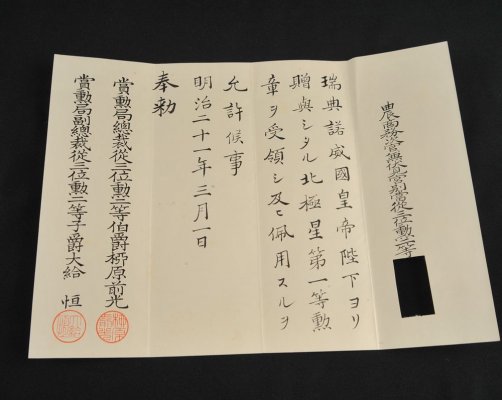 農商務 伏見宮別當從三位勳二等
瑞典諾威國皇帝陛下ヨリ
贈與シタル北極星第一等勲
章ヲ受領シ及ヒ佩用スルヲ
允許候事
明治二十一年三月一日
奉勅
賞勲局總裁從三位勲二等伯爵柳原前光
賞勲局副總裁從三位勲二等子爵大給恒